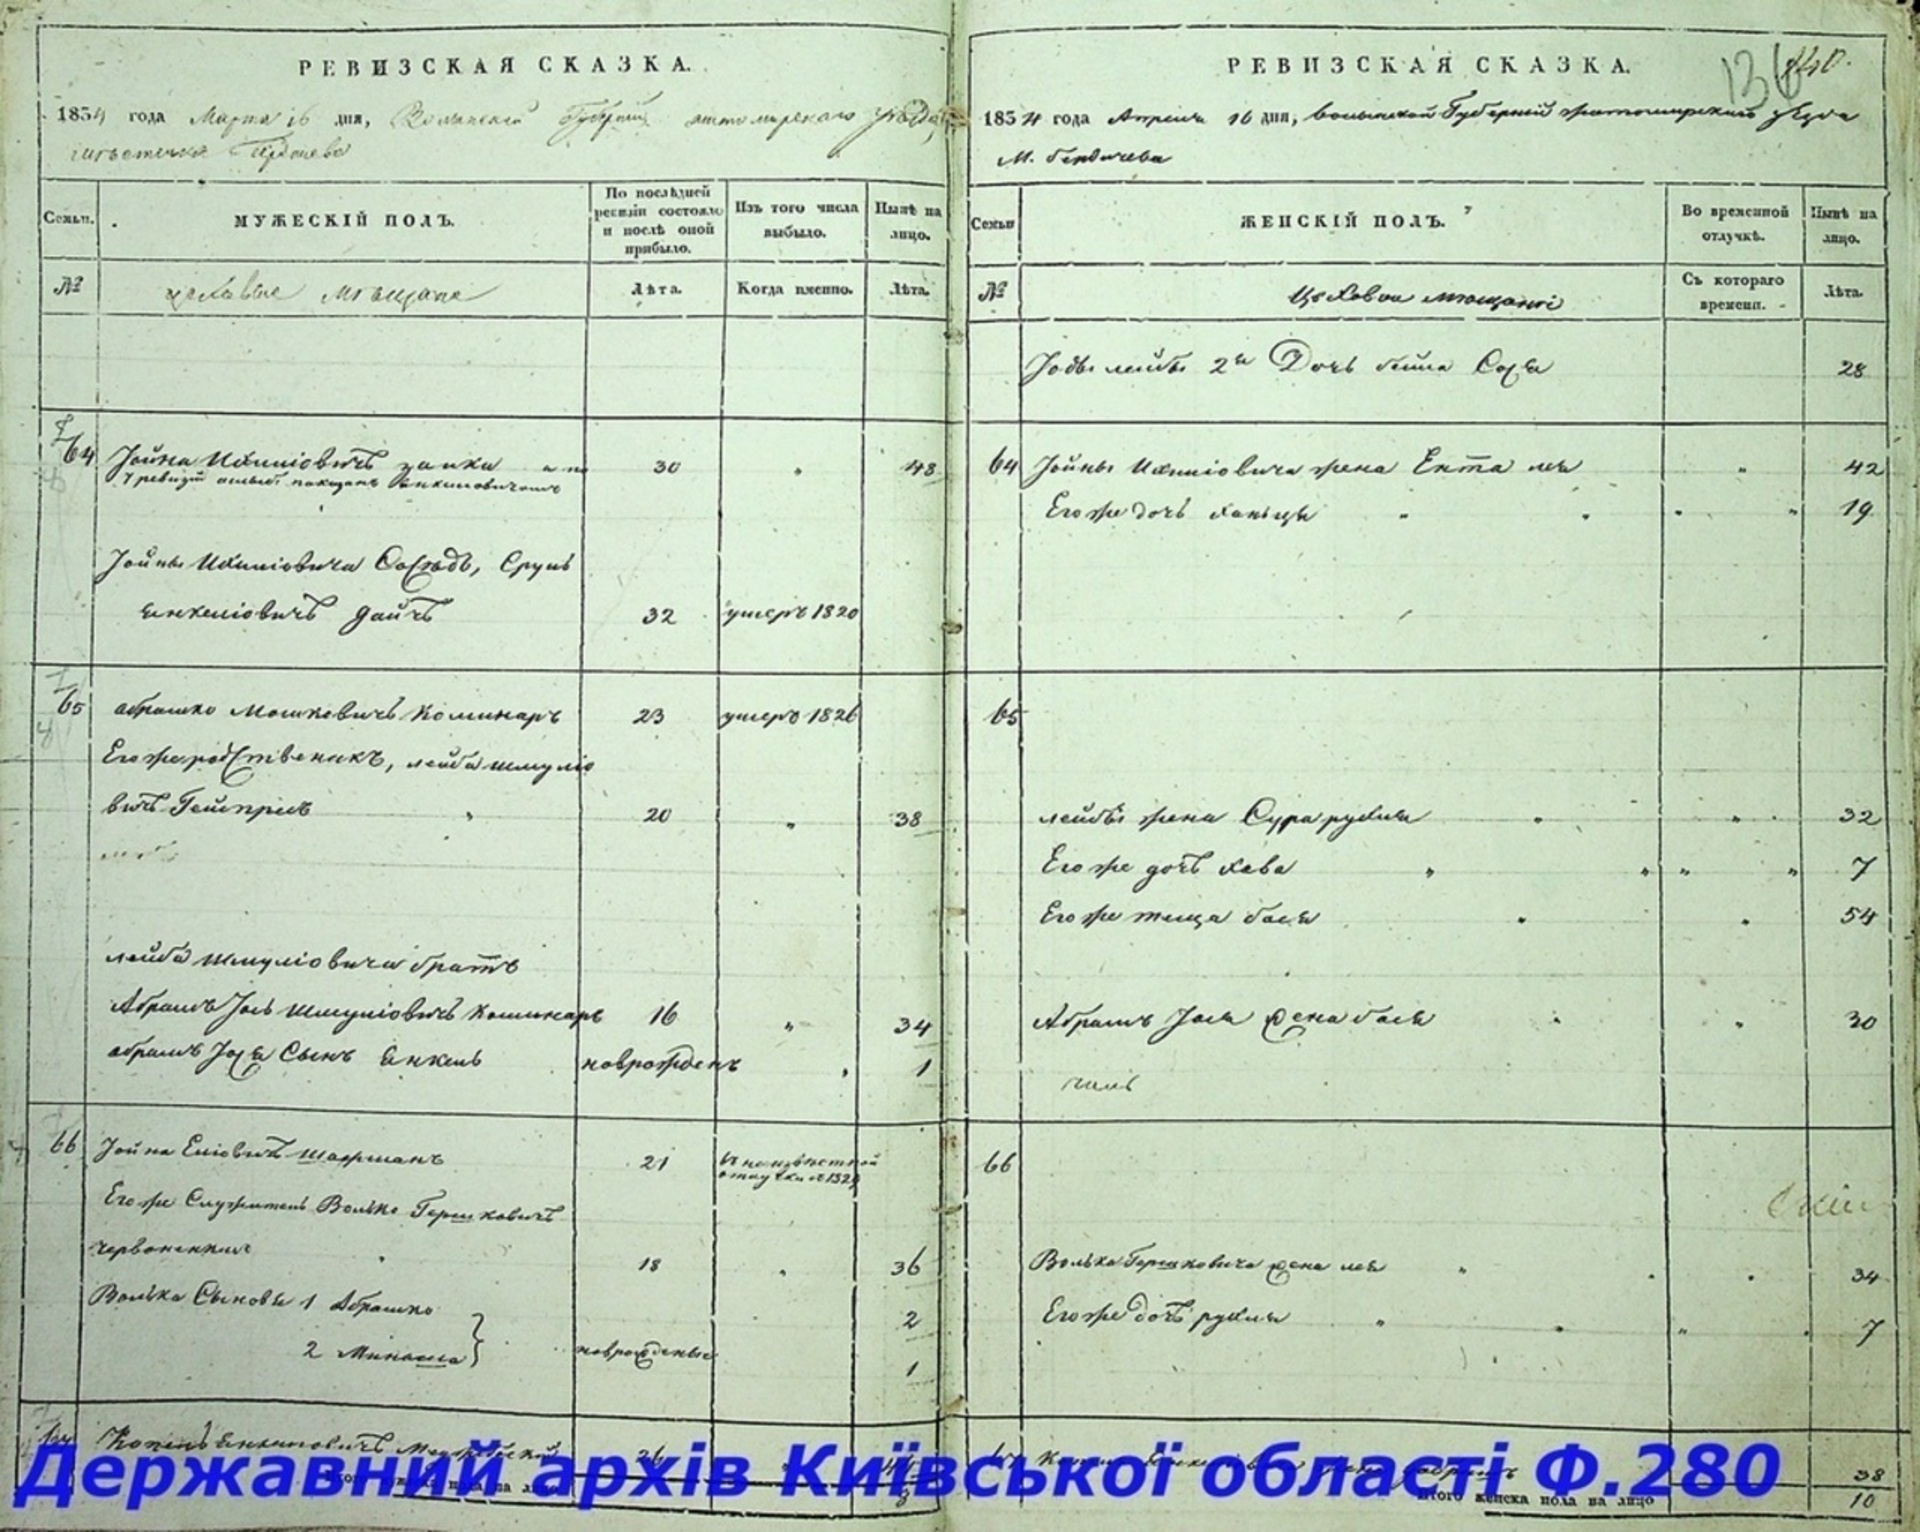 РЕВИЗСКАЯ СКАЗКА.
1834 года Марта 16 дня, Волынской Губернии Житомирскаго уезда
местечка Бердичева
Семьи.
МУЖЕСКІЙ ПОЛЪ.
По послѣдней ревизіи состояло и послѣ оной прибыло.
Изъ того числа выбыло.
Нынѣ на лицо.
№
цеховые мѣщане
Лѣта.
Когда именно.
Лѣта.
64 Іойна Ихиліовичъ 30 " 48
7 ревизіи
Іойны Ихиліовича Сосѣдъ, Сруль
Янкеліовичъ Дайчъ 32 умеръ 1820
65 абрашко Мошковичъ Коминаръ 23 умеръ 1826
Его же родственикъ, лейба шмуліо
вичъ 20 " 38
лейба шмуліовича братъ
Абрамъ Іось Шмуліовичъ Коминаръ 16 " 34
абрамъ Іося Сынъ Янкель новорожденъ " 1
66 Іойна Еліовичъ 21
Его же Служитель Волько Гершковичъ
18 " 36
Волька Сыновья 1 Абрашко 2
2 новорожденые 1
26
РЕВИЗСКАЯ СКАЗКА.
1834 года Апреля 16 дня, волынской Губерніи житомирскаго уезда
м. бердичева
Семьи
ЖЕНСКІЙ ПОЛЪ.
Во временной отлучкѣ.
Нынѣ на лицо.
№
Цеховые мещане
Съ котораго времени.
Лѣта.
лейбы 2я Дочь бейла Сося 28
64 Іойны Ихиліовича жена Ента лея " 42
Его же дочь ханьця " " " " 19
65
лейбы жена Сура рухля " " 32
Его же дочь хава " " " " 7
Его же теща бася " " 54
Абрамъ Іося жена бася " " 30
66
Волька Гершковича жена лея " " " 34
Его же дочь рухля " " " " 7
38
Итого женска пола на лицо 10
Державний архів Київської області Ф.280